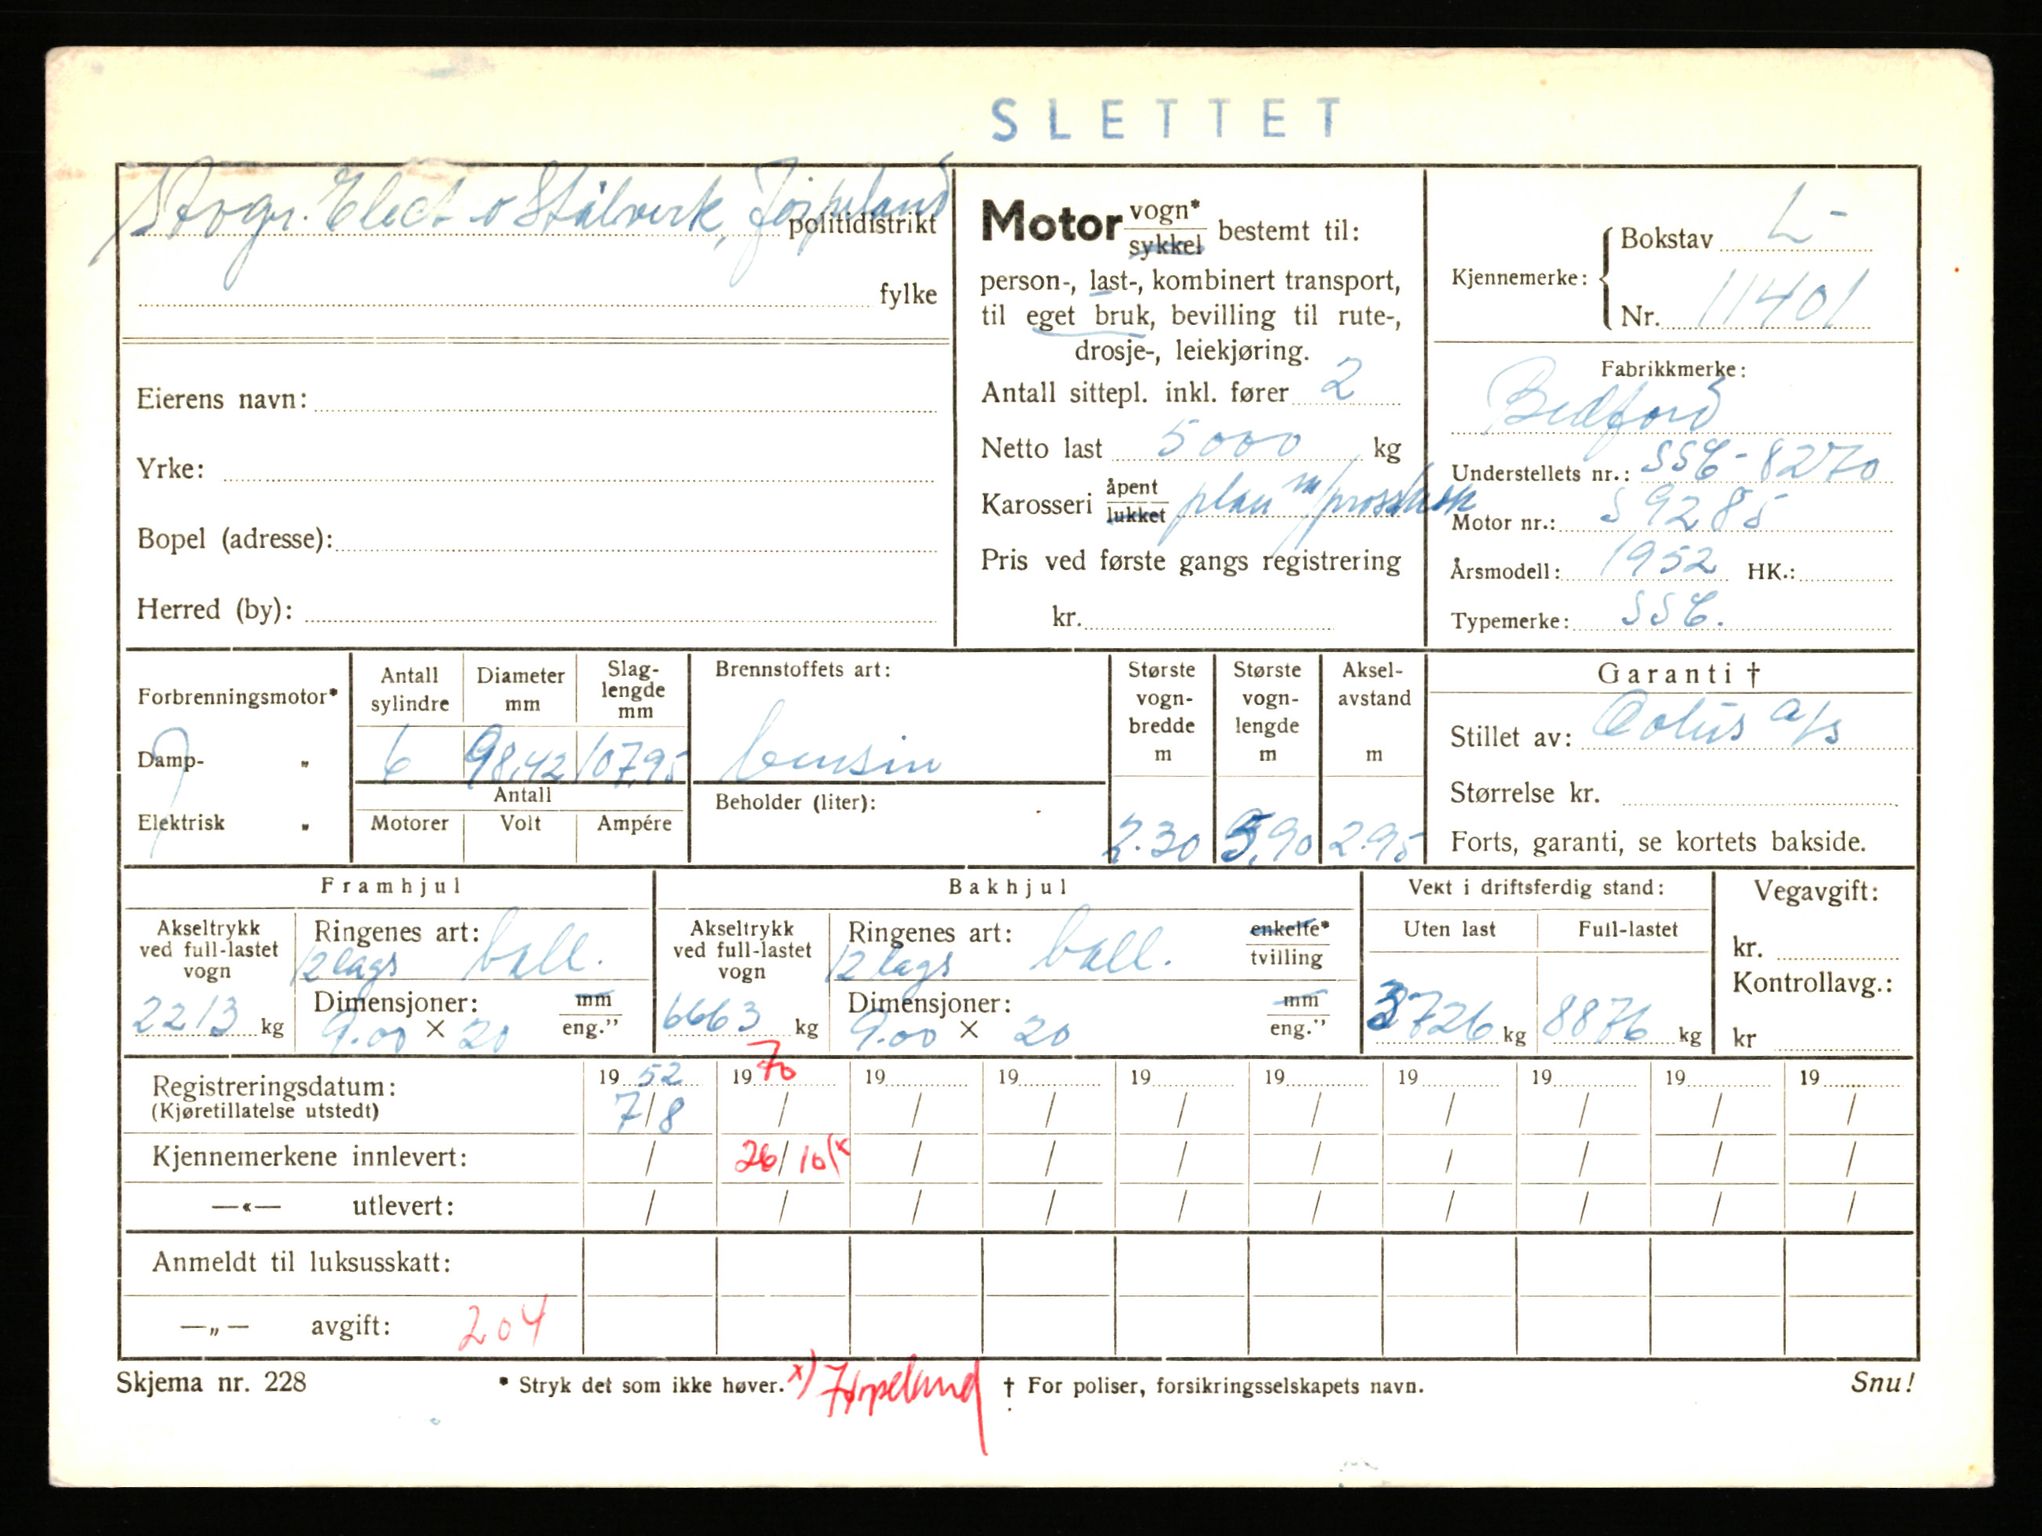 SLETTET
Stvgr. Elect. o Stålverk, Jørpeland politidistrikt
fylke
Eierens navn:
Yrke:
Bopel (adresse):
Herred (by):
Motor vogn* sykkel bestemt til:
person-, last-, kombinert transport,
til eget bruk, bevilling til rute-,
drosje-, leiekjøring.
Antall sittepl. inkl. fører 2
Netto last 5000 kg
Karosseri åpent lukket plan m/
Pris ved første gangs registrering
kr.
Kjennemerke: Bokstav L-
Nr. 11401
Fabrikkmerke:
Bedford
Understellets nr.: SSC-8270
Motor nr.: S 9285
Årsmodell: 1952 HK.:
Typemerke: SSC.
Forbrenningsmotor*
Damp- „
Elektrisk „
Antall sylindre
Diameter mm
Slag-lengde mm
6 98,42 107,95
Antall
Motorer Volt Ampére
Brennstoffets art:
bensin
Beholder (liter):
Største vogn-bredde m
2.30
Største vogn-lengde m
5,90
Aksel-avstand m
2.95
Garanti †
Stillet av: Colus a/s
Størrelse kr.
Forts, garanti, se kortets bakside.
Framhjul
Akseltrykk ved full-lastet vogn
2213 kg
Ringenes art:
12 lags ball.
Dimensjoner: mm
9.00 × 20 eng."
Bakhjul
Akseltrykk ved full-lastet vogn
6663 kg
Ringenes art: enkelte*
12 lags ball. tvilling
Dimensjoner: mm
9.00 × 20 eng."
Vekt i driftsferdig stand:
Uten last Full-lastet
3726 kg 8876 kg
Vegavgift:
kr.
Kontrollavg.:
kr
Registreringsdatum: 19 52 19 70 19 19 19 19 19 19 19 19
(Kjøretillatelse utstedt) 7/8 / / / / / / / / /
Kjennemerkene innlevert: / 26/10 (x / / / / / / / /
—«— utlevert: / / / / / / / / / /
Anmeldt til luksusskatt:
—„— avgift: 204
Skjema nr. 228 * Stryk det som ikke høver. x) Jørpeland † For poliser, forsikringsselskapets navn. Snu!